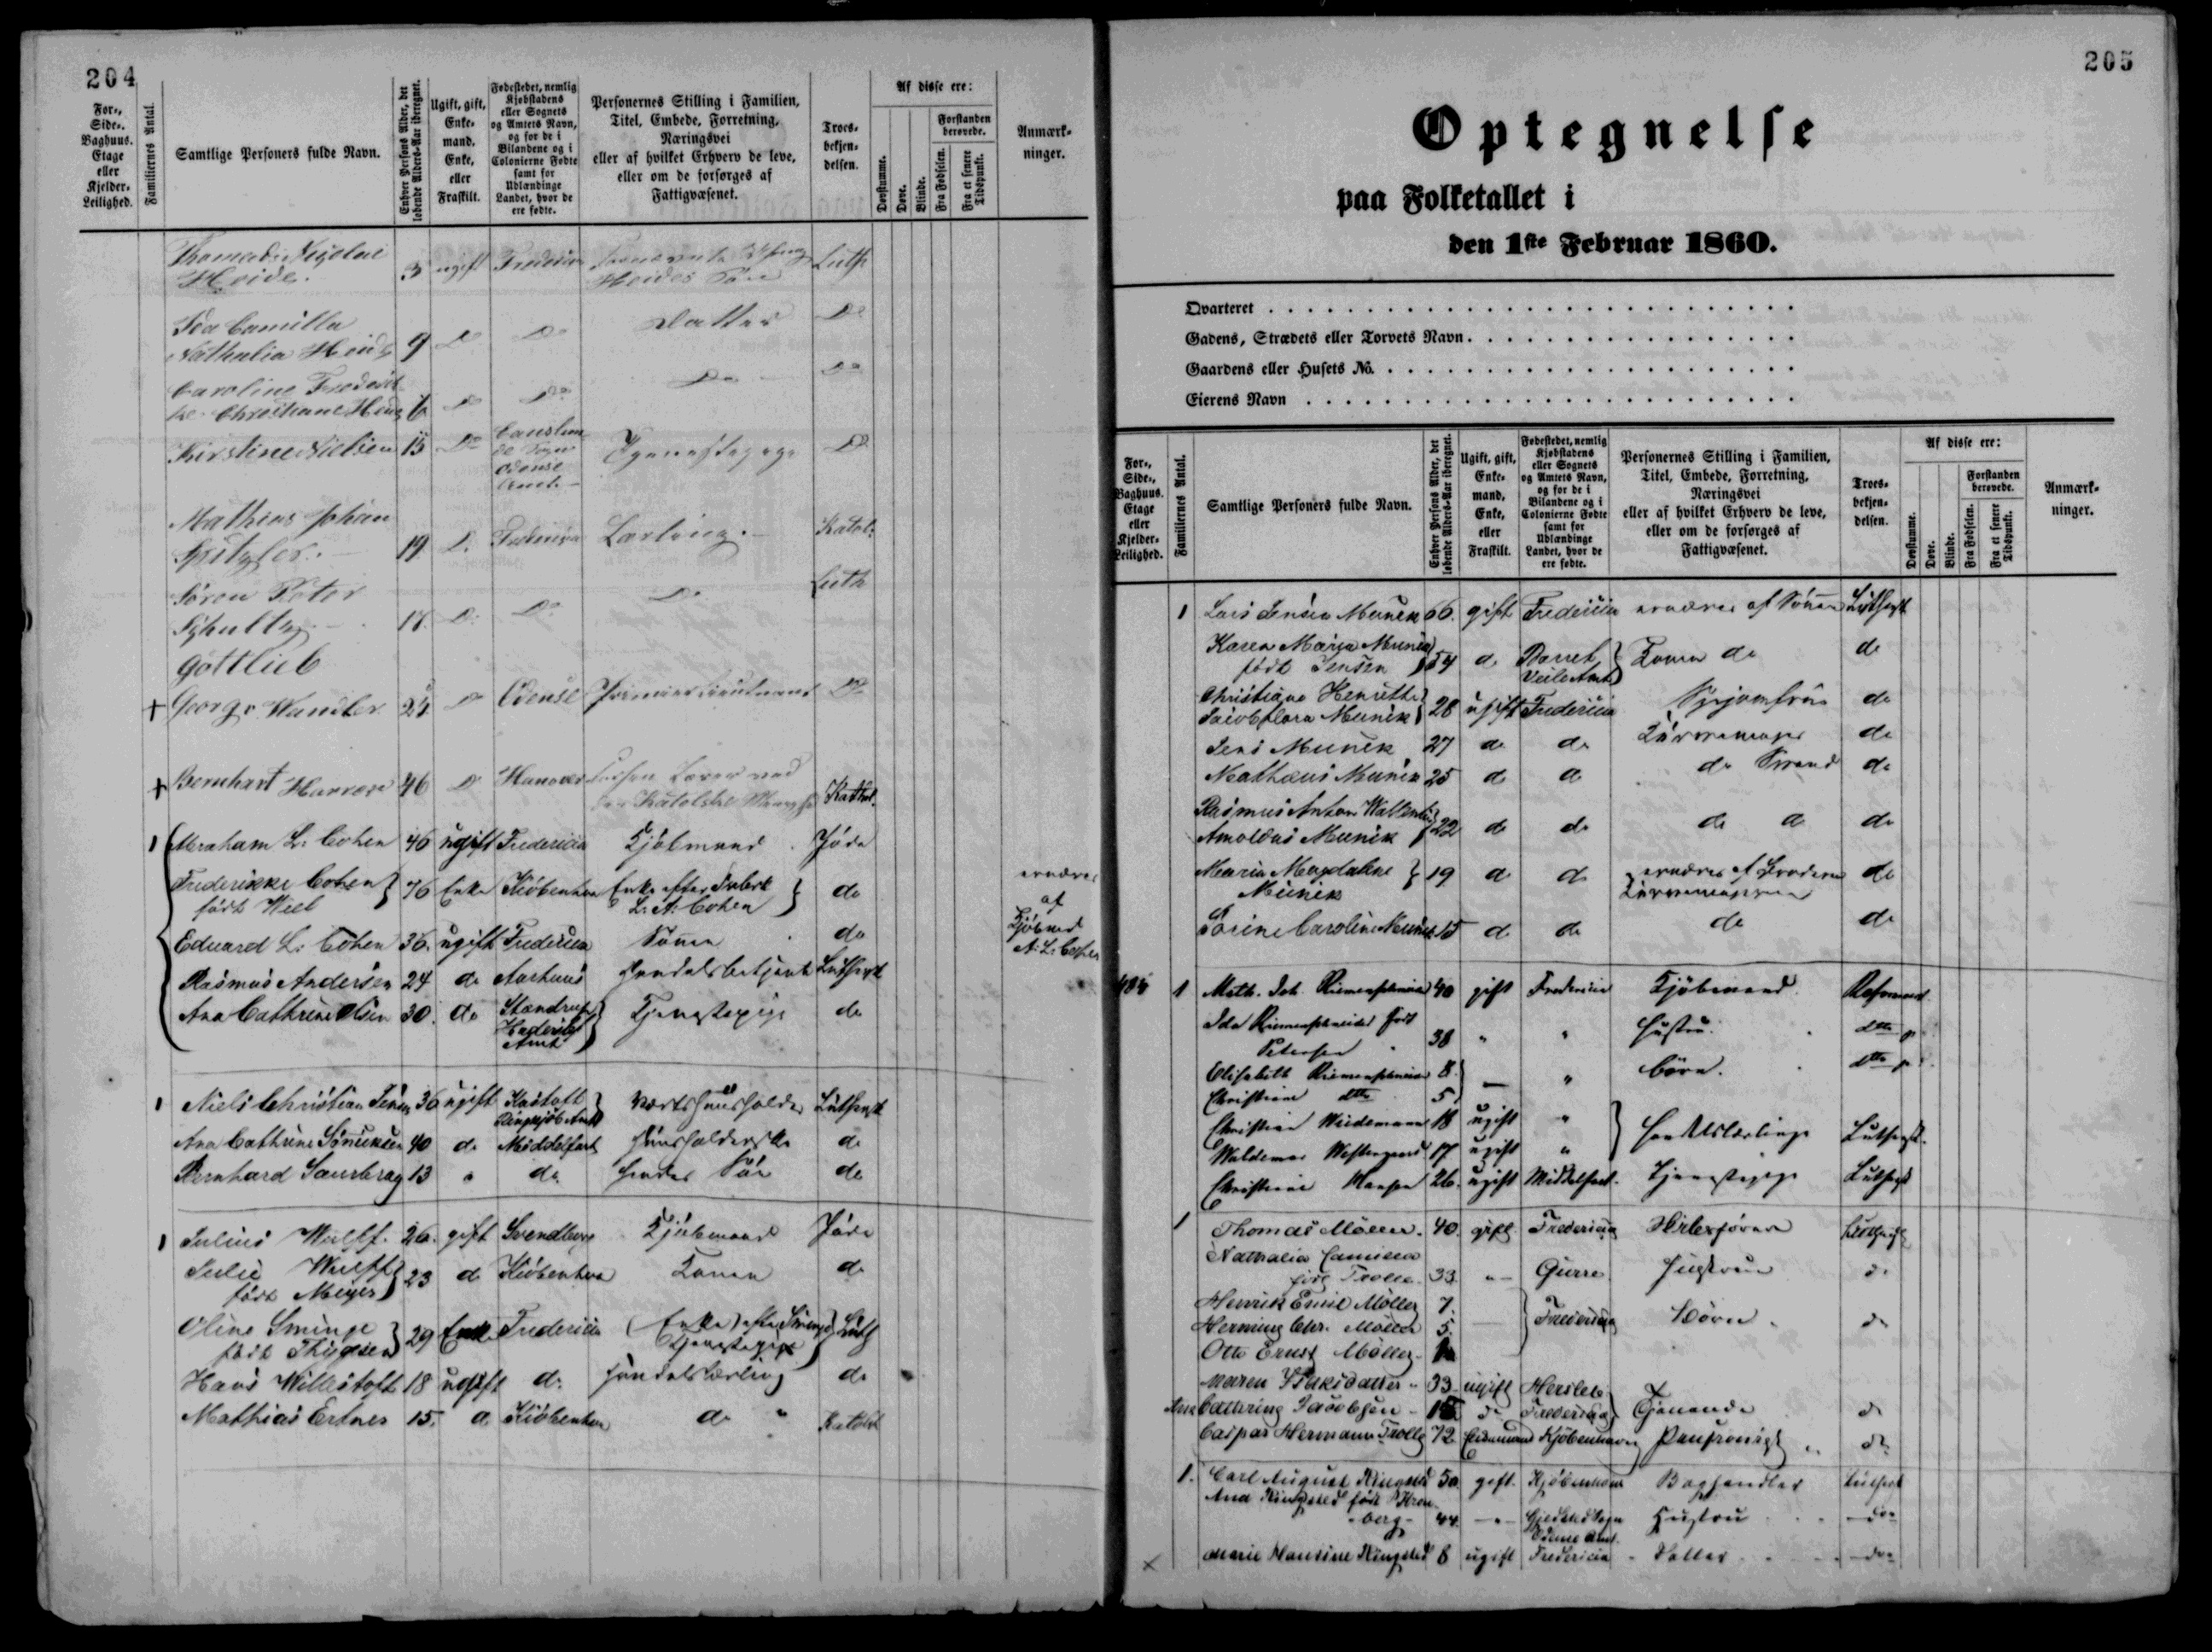 204
For-, Side-, Baghuus. Etage eller Kjelder-Leilighed.
Familiernes Antal.
Samtlige Personers fulde Navn.
Enhver Persons Alder, det løbende Alders-Aar iberegnet.
Ugift, gift, Enkemand, Enke, eller Fraskilt.
Fødestedet, nemlig Kjøbstadens eller Sognets og Amtets Navn, og for de i Bilandene og i Colonierne Fødte samt for Udlændinge Landet, hvor de ere fødte.
Personernes Stilling i Familien, Titel, Embede, Forretning, Næringsvei eller af hvilket Erhverv de leve, eller om de forsørges af Fattigvæsenet.
Troesbekjendelsen.
Af disse ere:
Døvstumme.
Døve.
Blinde.
Forstanden berøvede.
Fra Fødselen.
Fra et senere Tidspunkt.
Anmærkninger.
Nicolai
Heide. 3 ugift Fredericia Heides Søn Luth
Ida Camilla
Nathalia Heide 9 Do Do Datter Do
Caroline Frederik
ke Christiane Heide 6 Do Do Do Do
Kirstine Nielsen 15 Do Sogn Odense Amt Tjenestepige Do
Mathias Johan
19 Do Fredericia Lærling. Kathol:
Søren Peter
Schultz 18 Do Do Do Luth
Gottlieb
+ Georg Wandler 24 Do Odense Premierlieutnant Do
+ Bernhart 46 Do Hanover Lærer ved
den Katolske Kathol.
1 Abraham L. Cohen 46 ugift Fredericia Kjøbmand Jøde
Frederikke Cohen
født Weil 76 Enke Kiöbenhavn Enke efter
L. A. Cohen do ernæres af Kjøbmd A. L. Cohen
Eduard L. Cohen 36. ugift Fredericia Sönn do
Rasmus Andersen 24 do Aarhuus Handelsbetjent Luthersk
Ana Cathrine Olsen 30. do Standrup Haderslev Amt Tjenestepige do
1 Niels Christian Jensen 36 ugift Ringkjøb Amt Værtshuusholder Luthersk
Ana Cathrine 40 do Middelfart Huusholderske do
Bernhard 13 " do hendes Sön do
1 Julius Wulff. 26. gift Svendborg Kjøbmand Jøde
Julie Wulff
født Meyer 23 do Kiöbenhavn Konen do
Oline Sminge
født Thygesen 29 Enke Fredericia (Enke) efter Sminge
Tjenestepige Luth
Hans Willestoft 18 ugift do Handelslærling do
Mathias Ertner 15. do Kiöbenhavn do " Katolsk
205
Optegnelse
paa Folketallet i
den 1ste Februar 1860.
Qvarteret
Gadens, Strædets eller Torvets Navn.
Gaardens eller Husets No.
Eierens Navn
For-, Side-, Baghuus. Etage eller Kjelder-Leilighed.
Familiernes Antal.
Samtlige Personers fulde Navn.
Enhver Persons Alder, det løbende Alders-Aar iberegnet.
Ugift, gift, Enkemand, Enke, eller Fraskilt.
Fødestedet, nemlig Kjøbstadens eller Sognets og Amtets Navn, og for de i Bilandene og i Colonierne Fødte samt for Udlændinge Landet, hvor de ere fødte.
Personernes Stilling i Familien, Titel, Embede, Forretning, Næringsvei eller af hvilket Erhverv de leve, eller om de forsørges af Fattigvæsenet.
Troesbekjendelsen.
Af disse ere:
Døvstumme.
Døve.
Blinde.
Forstanden berøvede.
Fra Fødselen.
Fra et senere Tidspunkt.
Anmærkninger.
1 Lars Jensen Munck 66. gift Fredericia ernæres af Sönnen Luthersk
Karen Marya Munck
født Jensen 54 do Barret Veile Amt Konen do do
Christiane Henriette
Munck 28 ugift Fredericia Syejomfru do
Jens Munck 27 do do do
Mathæus Munck 25 do do do Svend do
Rasmus Anton
Arnoldus Munck 22 do do do do do
Maria Magdalene
Munck 19 do do ernæres af Broderen do
Sörine Caroline Munck 15 do do do do
1 Math. Joh. Riemenschneider 40 gift Fredericia Kjøbmand Reformert
Ida Riemenschneider født
Petersen 38 " " Hustru. dto
Elisabeth Riemenschneider 8. " Børn. dto
Christiane dto 5
Christian Weidemann 18 ugift " Handelslærlinge Luthersk.
Waldemar Westergaard 17 ugift "
Christine Hansen 26. ugift Middelfart. Tjenestepige Luthersk
1 Thomas Möller. 40. gift Fredericia Luthersk
Nathalia Camilla
født Trolle. 33. "- Gurre. Hustrue do
Henrik Emil Möller 7.
Herming Chr. Möller 5. Fredericia Børn. do
Otto Ernst Möller
Maren Isaksdatter 33 ugift Herslev
Ane Cathrine Jacobsen - 15 do Fredericia Tjenende do
Caspar Hermann Trolle 72 Enkemand Kjöbenhavn Pensionist do
1. Carl August Ringsted 50 gift. Kjöbenhavn Boghandler Luthersk
Ana Ringsted født
berg 44. -"- Sogn Odense Amt. Hustru do
Marie Hansine Ringsted 8 ugift Fredericia - Datter do